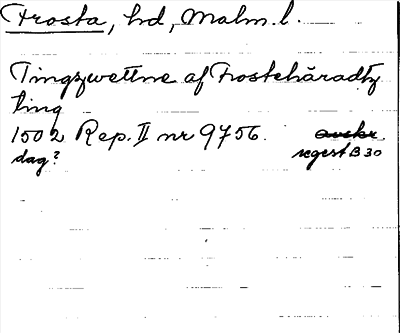 Frosta, hd, Malm. l.
Tingzwettne af Frostehäradtz
ting
1502 Rep. II nr 9756. avskr.
dag? regest B 30